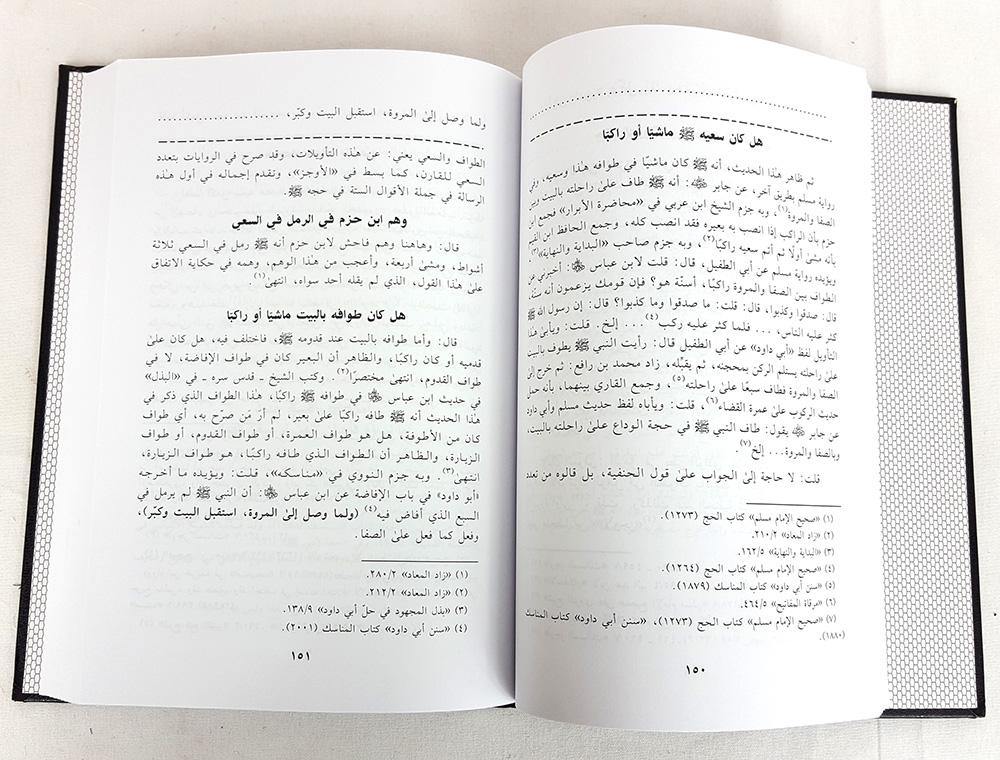 هل كان سعيه ﷺ ماشيًا أو راكبًا
ثم ظاهر هذا الحديث، أنه ﷺ كان ماشيًا في طوافه هذا وسعيه، وفي
رواية مسلم بطريق آخر، عن جابر ﷺ: أنه ﷺ طاف علىٰ راحلته بالبيت وبين
الصفا والمروة(١)، وبه جزم الشيخ ابن عربي في «محاضرة الأبرار» فجمع ابن
حزم بأن الراكب إذا انصب به بعيره فقد انصب كله، وجمع الحافظ ابن القيم
بأنه مشىٰ أولًا ثم أتم سعيه راكبًا(٢)، وبه جزم صاحب «البداية والنهاية»(٣)،
ويؤيده رواية مسلم عن أبي الطفيل، قال: قلت لابن عباس: أخبرني عن
الطواف بين الصفا والمروة راكبًا، أسنّة هو؟ فإن قومك يزعمون أنه سنّة،
قال: صدقوا وكذبوا، قال: قلت: ما صدقوا وما كذبوا؟ قال: إن رسول الله ﷺ
كثر عليه الناس، ... فلما كثر عليه ركب(٤) ... إلخ. قلت: ويأبىٰ هذا
التأويل لفظ «أبي داود» عن أبي الطفيل قال: رأيت النبي ﷺ يطوف بالبيت
علىٰ راحلته يستلم الركن بمحجنه، ثم يقبّله، زاد محمد بن رافع: ثم خرج إلىٰ
الصفا والمروة فطاف سبعًا علىٰ راحلته(٥)، وجمع القاري بينهما، بأنه حمل
حديث الركوب علىٰ عمرة القضاء(٦)، قلت: ويأباه لفظ حديث مسلم وأبي داود
عن جابر يقول: طاف النبي ﷺ في حجة الوداع علىٰ راحلته بالبيت،
وبالصفا والمروة... إلخ(٧).
قلت: لا حاجة إلىٰ الجواب علىٰ قول الحنفية، بل قالوه من تعدد
(١) «صحيح الإمام مسلم» كتاب الحج (١٢٧٣).
(٢) «زاد المعاد» ٢١٠/٢.
(٣) «البداية والنهاية» ١٦٢/٥.
(٤) «صحيح الإمام مسلم» كتاب الحج (١٢٦٤).
(٥) «سنن أبي داود» كتاب المناسك (١٨٧٩).
(٦) «مرقاة المفاتيح» ٤٦٤/٥.
(٧) «صحيح الإمام مسلم» كتاب الحج (١٢٧٣)، «سنن أبي داود» كتاب المناسك
(١٨٨٠).
١٥٠
ولما وصل إلىٰ المروة، استقبل البيت وكبّر، ......................
الطواف والسعي يعني: عن هذه التأويلات، وقد صرح في الروايات بتعدد
السعي للقارن، كما بسط في «الأوجز»، وتقدم إجماله في أول هذه
الرسالة في جملة الأقوال الستة في حجه ﷺ.
وهم ابن حزم في الرمل في السعي
قال: وهاهنا وهم فاحش لابن حزم أنه ﷺ رمل في السعي ثلاثة
أشواط، ومشىٰ أربعة، وأعجب من هذا الوهم، وهمه في حكاية الاتفاق
علىٰ هذا القول، الذي لم يقله أحد سواه، انتهىٰ(١).
هل كان طوافه بالبيت ماشيًا أو راكبًا
قال: وأما طوافه بالبيت عند قدومه ﷺ، فاختلف فيه، هل كان علىٰ
قدميه أو كان راكبًا، والظاهر أن البعير كان في طواف الإفاضة، لا في
طواف القدوم، انتهىٰ مختصرًا(٢). وكتب الشيخ ـ قدس سره ـ في «البذل»
في حديث ابن عباس في طوافه ﷺ راكبًا، هذا الطواف الذي ذكر في
هذا الحديث أنه ﷺ طافه راكبًا علىٰ بعير، لم أرَ مَن صرّح به، أي طواف
كان من الأطوفة، هل هو طواف العمرة، أو طواف القدوم، أو طواف
الزيارة، والظاهر أن الطواف الذي طافه راكبًا، هو طواف الزيارة،
انتهىٰ(٣). وبه جزم النووي في «مناسكه»، قلت: ويؤيده ما أخرجه
«أبو داود» في باب الإفاضة عن ابن عباس: أن النبي ﷺ لم يرمل في
السبع الذي أفاض فيه(٤) (ولما وصل إلىٰ المروة، استقبل البيت وكبّر)،
وفعل كما فعل علىٰ الصفا.
(١) «زاد المعاد» ٢٨٠/٢.
(٢) «زاد المعاد» ٢١٢/٢.
(٣) «بذل المجهود في حلّ أبي داود» ١٣٨/٩.
(٤) «سنن أبي داود» كتاب المناسك (٢٠٠١).
١٥١